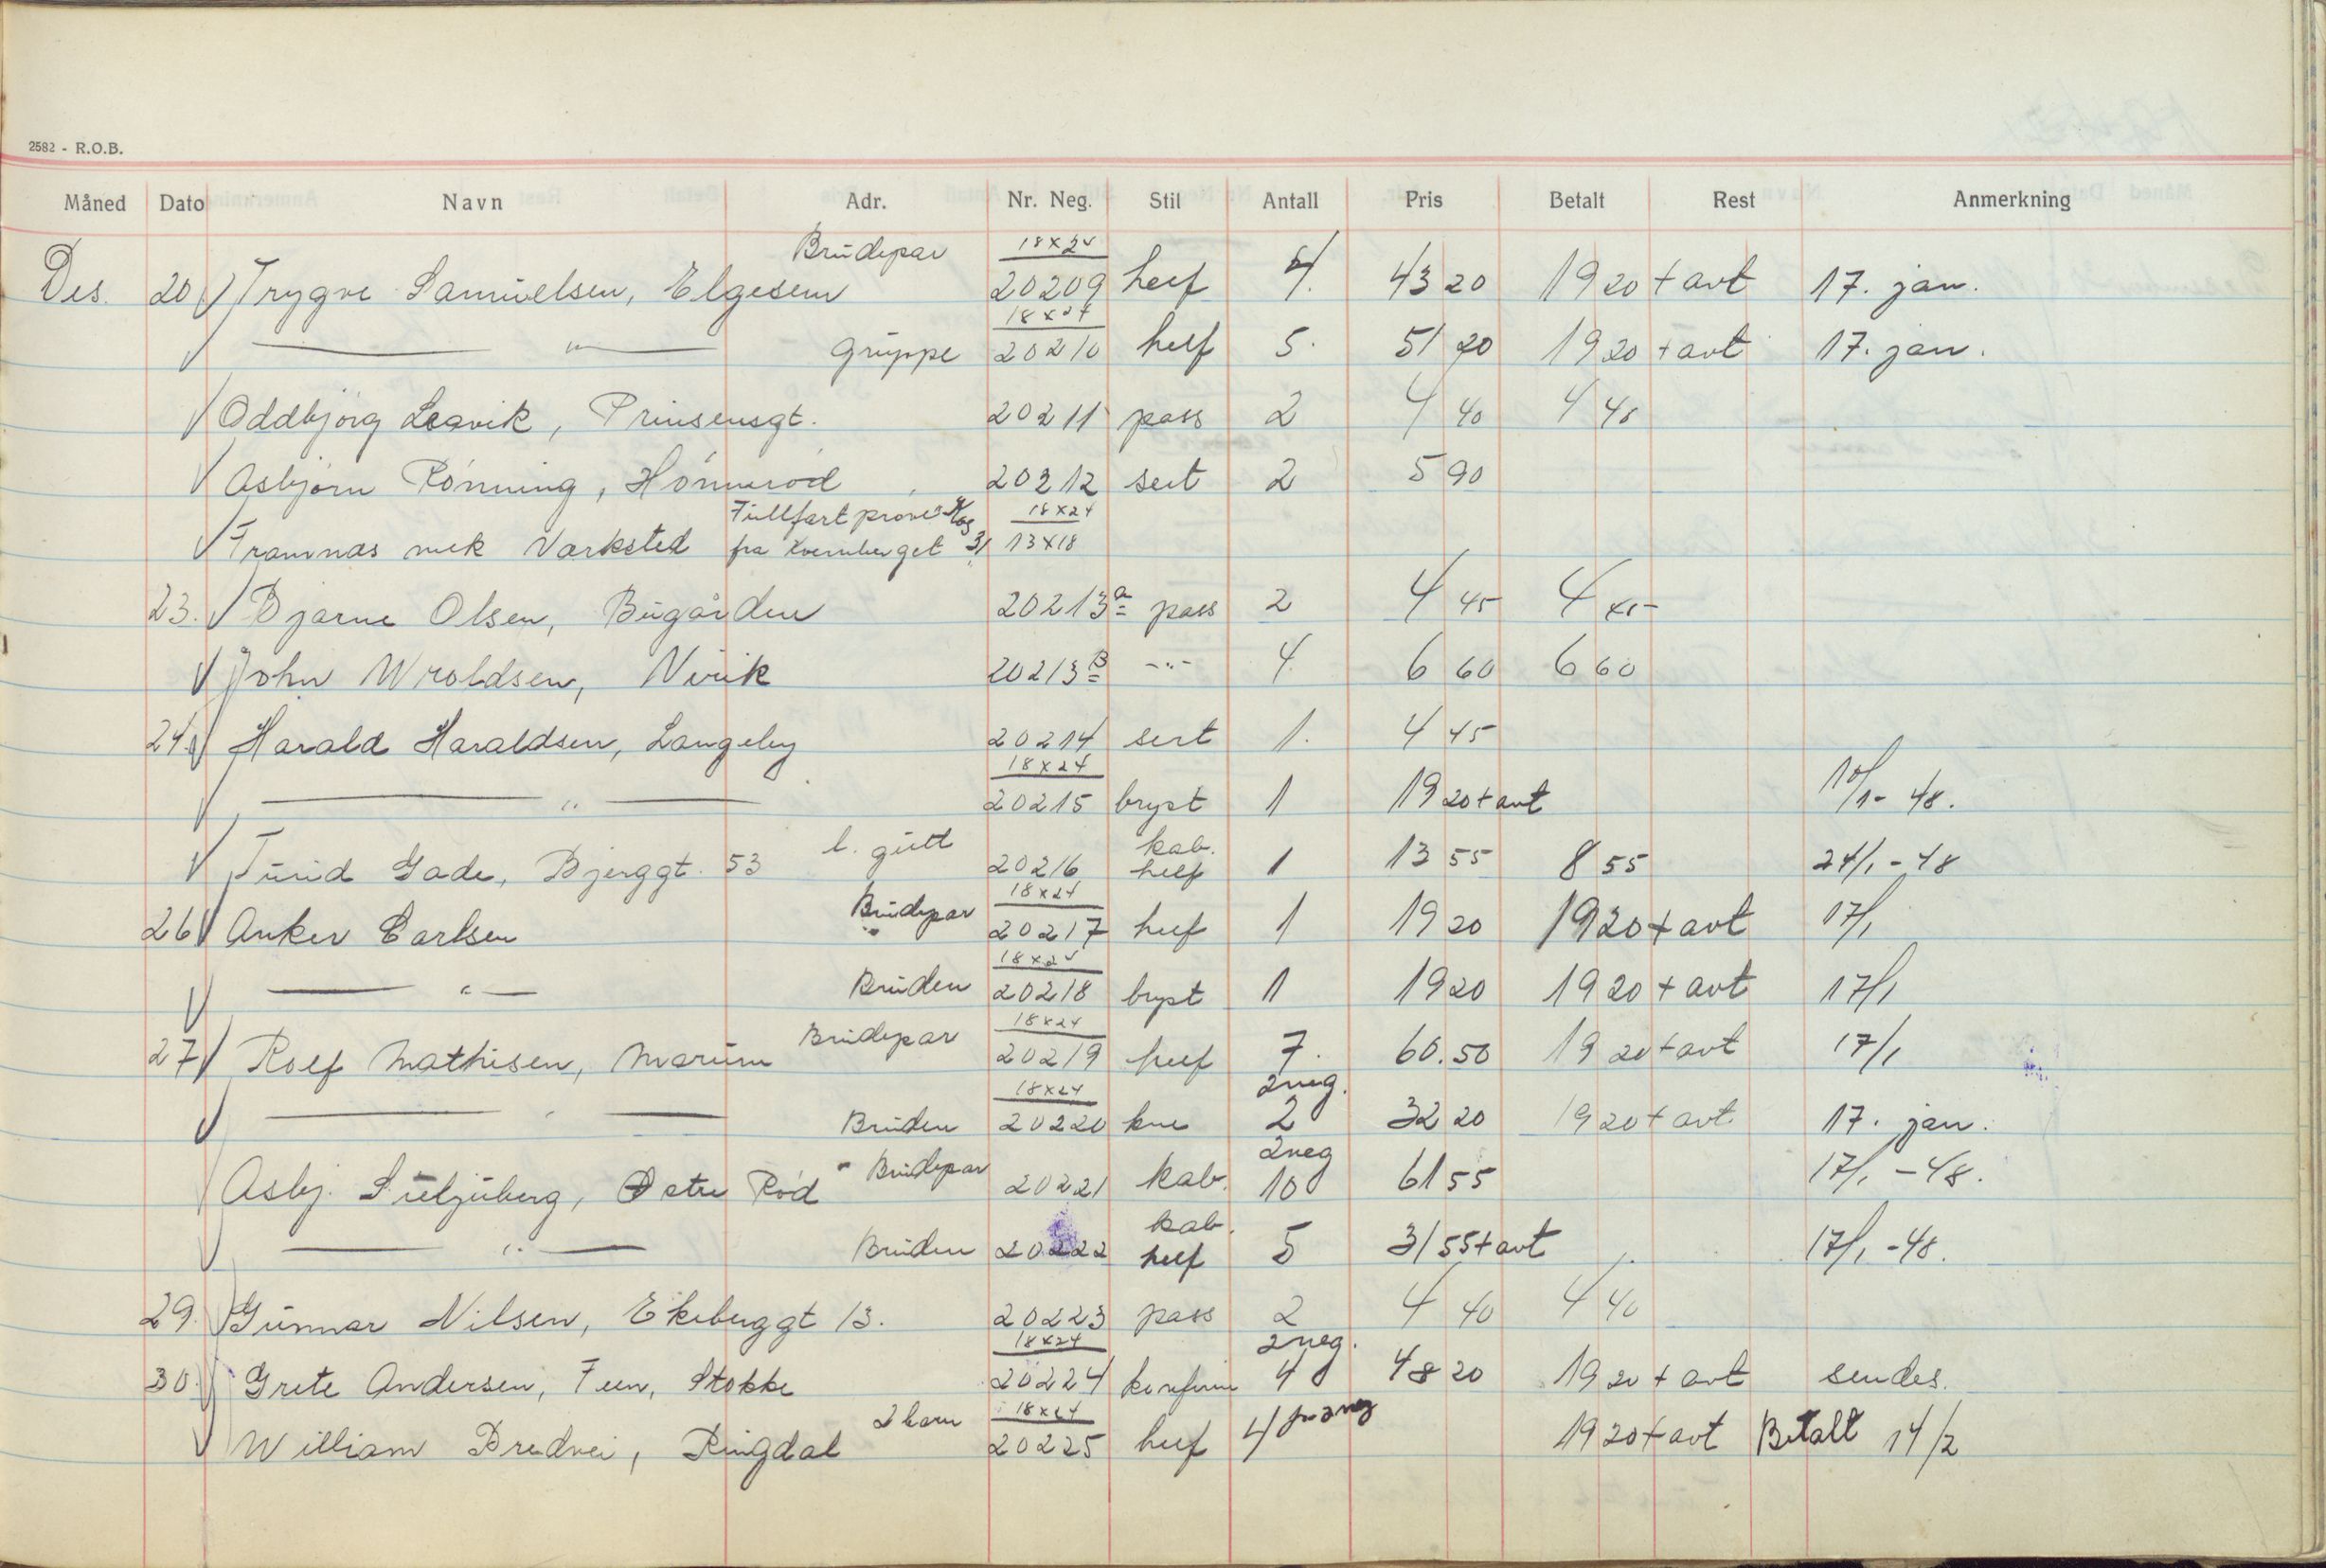 2582 - R.O.B.
Måned Dato Navn Adr. Nr. Neg. Stil Antall Pris Betalt Rest Anmerkning
Brudepar 18x24
Des. 20 Trygve Samuelsen, Elgesem 20209 helf 4. 43 20 19 20 + avt 17. jan.
18x24
" Gruppe 20210 helf 5. 51 20 19 20 + avt 17. jan.
Oddbjörg, Prinsensgt. 20211 pass 2 4 40 4 40
Asbjörn Rönning, 20212 sert 2 5 90
18x24
Framnæs mek Værksted fra 13x18
23. Bjarne Olsen, Bugården 20213 a pass 2 4 45 4 45
John Wroldsen, 20213 B -"- 4. 6 60 6 60
24. Harald Haraldsen, Langeby 20214 sert 1. 4 45
18x24
" 20215 bryst 1 19 20 + avt 10/1 - 48.
l. gutt kab.
Turid Gade, Bjerggt. 53 20216 helf 1 13 55 8 55 24/1 - 48
Brudepar 18x24
26 Anker Carlsen 20217 helf 1 19 20 19 20 + avt 17/1
18x24
" Bruden 20218 bryst 1 19 20 19 20 + avt 17/1
Brudepar 18x24
27 Rolf Mathisen, Marum 20219 helf 7. 60.50 19 20 + avt 17/1
18x24 2 neg.
" Bruden 20220 kne 2 32 20 19 20 + avt 17. jan.
Brudepar 2 neg
Asbj., Östre Röd 20221 kab. 10 61 55 17/1 - 48.
kab.
" Bruden 20222 helf 5 31 55 + avt 17/1 - 48.
29. Gunnar Nilsen, Ekeberggt 13. 20223 pass 2 4 40 4 40
18x24 2 neg.
30. Grete Andersen, Feen, Stokke 20224 konfirm 4 48 20 19 20 + avt sendes.
2 barn 18x24
William Bredvei, Ringdal 20225 helf 4 19 20 + avt Betalt 14/2